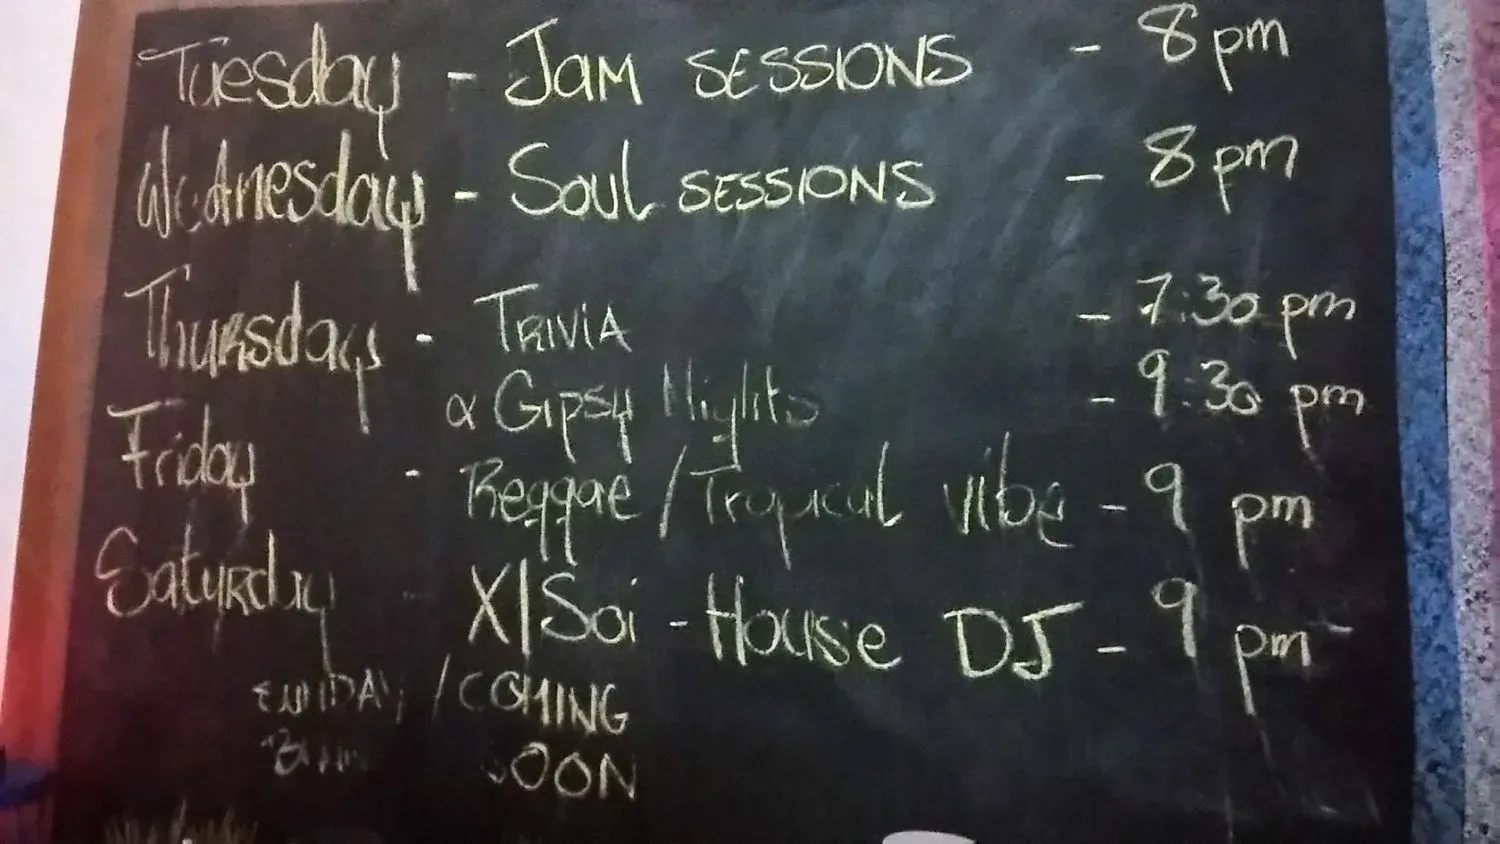 Tuesday - JAM SESSIONS - 8 pm
Wednesday - SOUL SESSIONS - 8 pm
Thursday - TRIVIA - 7:30 pm
& Gipsy Nights - 9:30 pm
Friday - Reggae / Tropical vibe - 9 pm
Saturday - X|Soi - House DJ - 9 pm
/ COMING
SOON